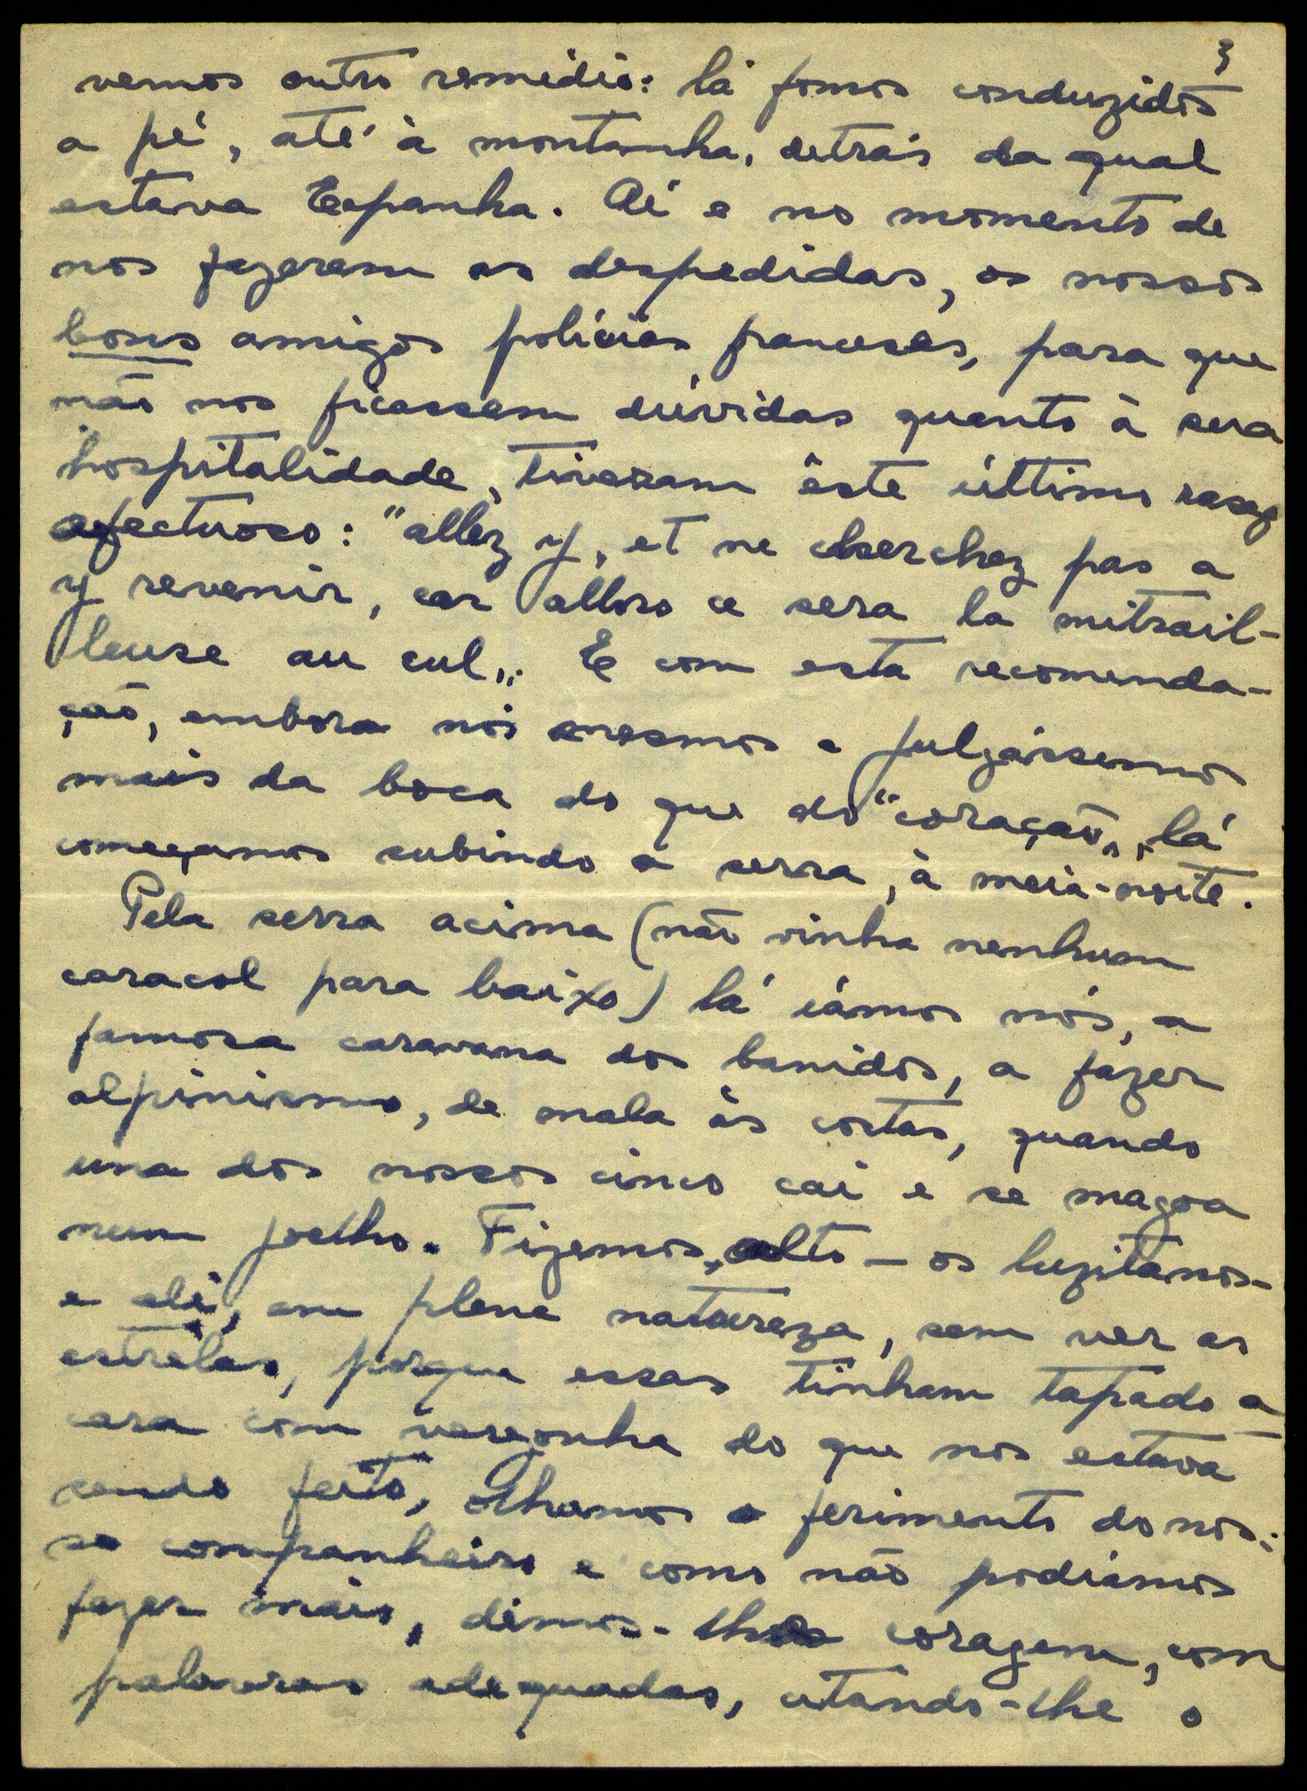 3
vemos outro remédio: lá fomos conduzidos
a pé, até à montanha, detrás da qual
estava Espanha. Aí e no momento de
nos fazerem as despedidas, os nossos
bons amigos polícias franceses, para que
não nos ficassem dúvidas quanto à sua
hospitalidade, tiveram êste último rasgo
afectuoso: "allez y, et ne cherchez pas a
y revenir, car allors ce sera la mitrail-
leuse au cul„. E com esta recomenda-
ção, embora nós mesmos a julgássemos
mais da boca do que do "coração„, lá
começamos subindo a serra, à meia-noite.
Pela serra acima (não vinha nenhum
caracol para baixo) lá iámos nós, a
famosa caravana dos banidos, a fazer
alpinismo, de mala às costas, quando
uma dos nossos cinco cai e se magoa
num joelho. Fizemos alto — os luzitanos —
e ali, em plena natureza, sem ver as
estrêlas, porque essas tinham tapado a
cara com vergonha do que nos estava
sendo feito, olhamos o ferimento do nos-
so companheiro e como não podiámos
fazer mais, démos-lhe coragem, com
palavras adequadas, citando-lhe o